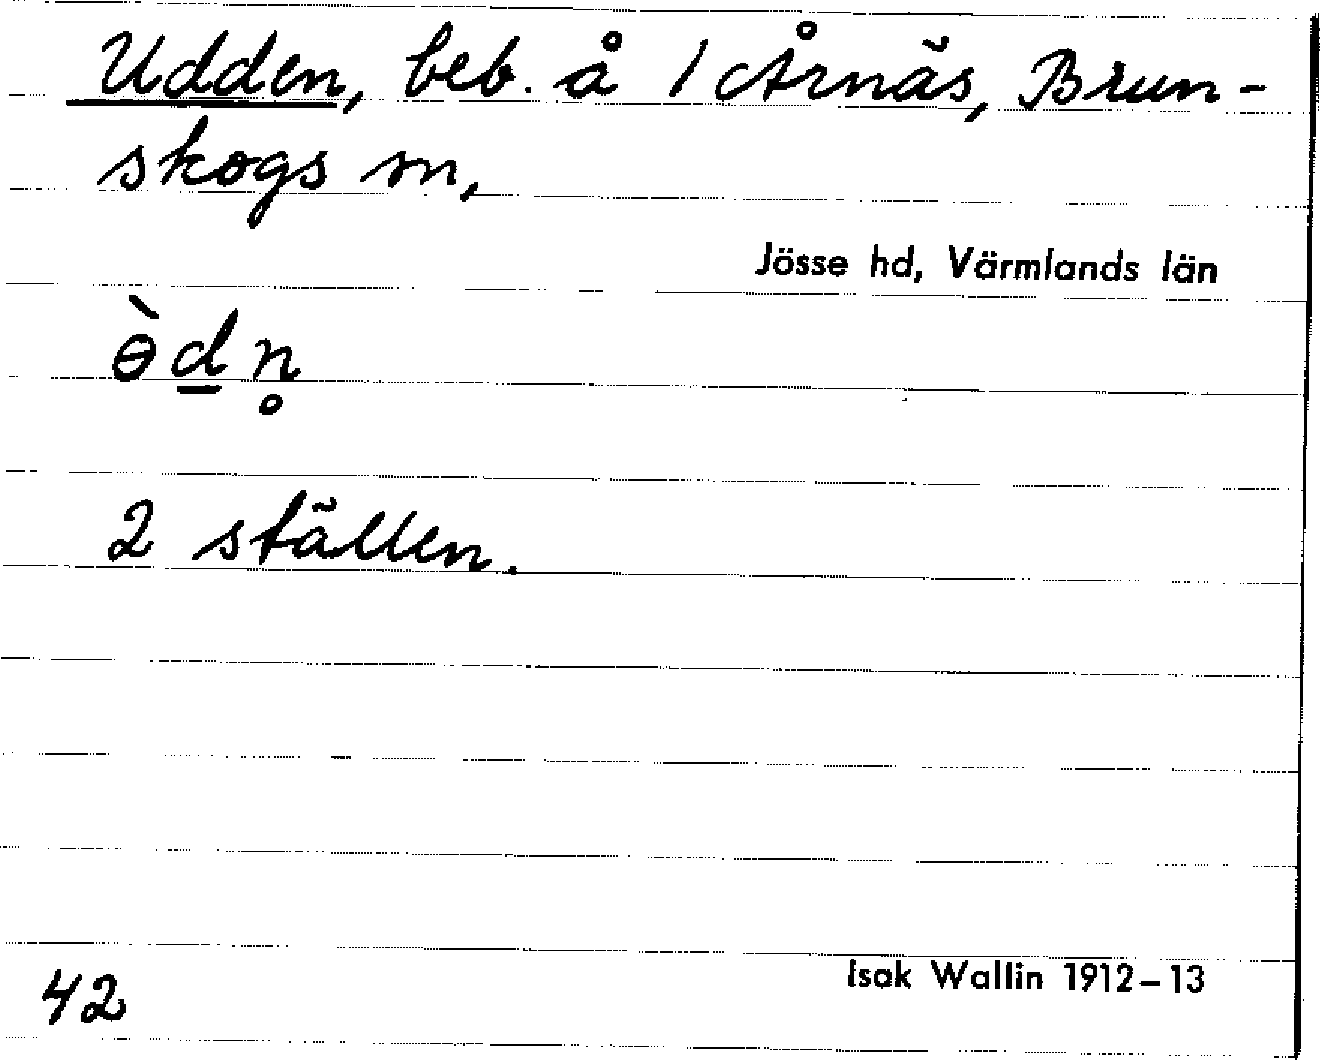 Udden, beb. å 1 Årnäs, Brun-
skogs sn,
Jösse hd, Värmlands län
ɵ̀d̲n̥
2 ställen.
Isak Wallin 1912–13
42